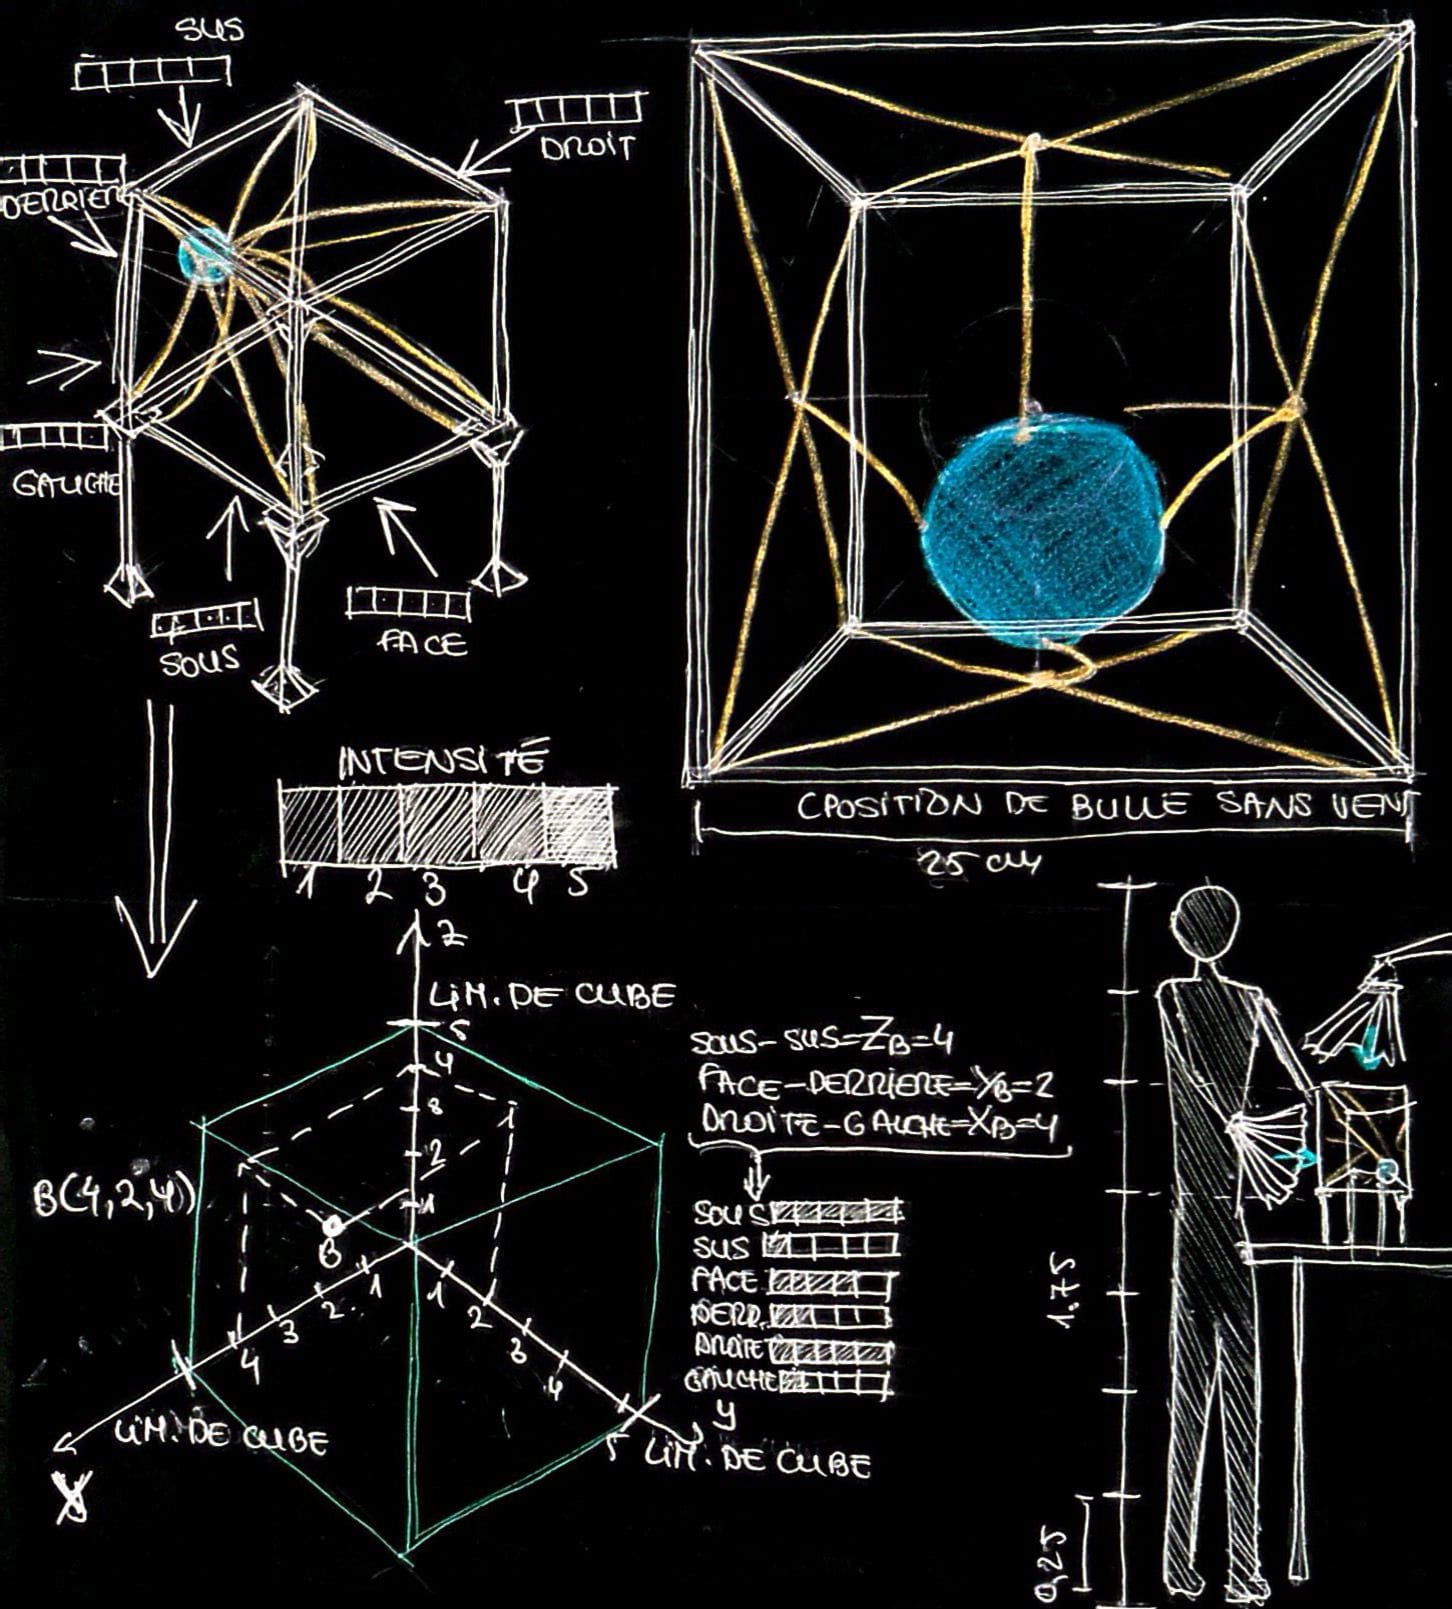 SUS
DROIT
DERRIERE
GAUCHE
SOUS
FACE
CPOSITION DE BULLE SANS VENT
25 cm
INTENSITÉ
1 2 3 4 5
Z
LIM. DE CUBE
5
4
3
2
1
SOUS-SUS=ZB=4
FACE-DERRIERE=YB=2
DROITE-GAUCHE=XB=4
B(4,2,4)
B
1 2 3 4
1 2 3 4 5
SOUS
SUS
FACE
DERR.
DROITE
GAUCHE
Y
LIM. DE CUBE
LIM. DE CUBE
X
1.75
0,25